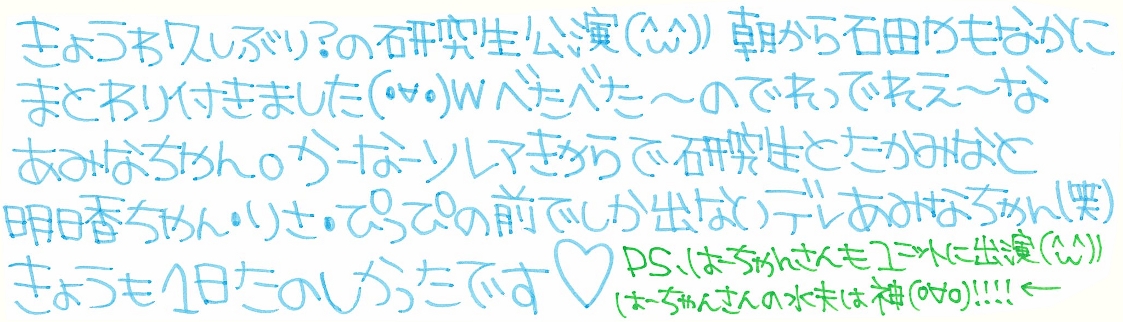 きょうわ久しぶり?の研究生公演(^ω^)) 朝から石田やもなかに
まとわり付きました(・∀・)W べたべた〜のでれっでれえ〜な
あみなちゃん。かーなーりレアきゃらで研究生とたかみなと
明日香ちゃん・りさ・ぴっぴの前でしか出ないデレあみなちゃん(笑)
きょうも1日たのしかったです♡
P.S、はーちゃんさんもユニットに出演(^ω^))
はーちゃんさんの水夫は神(0∀0)!!!!←